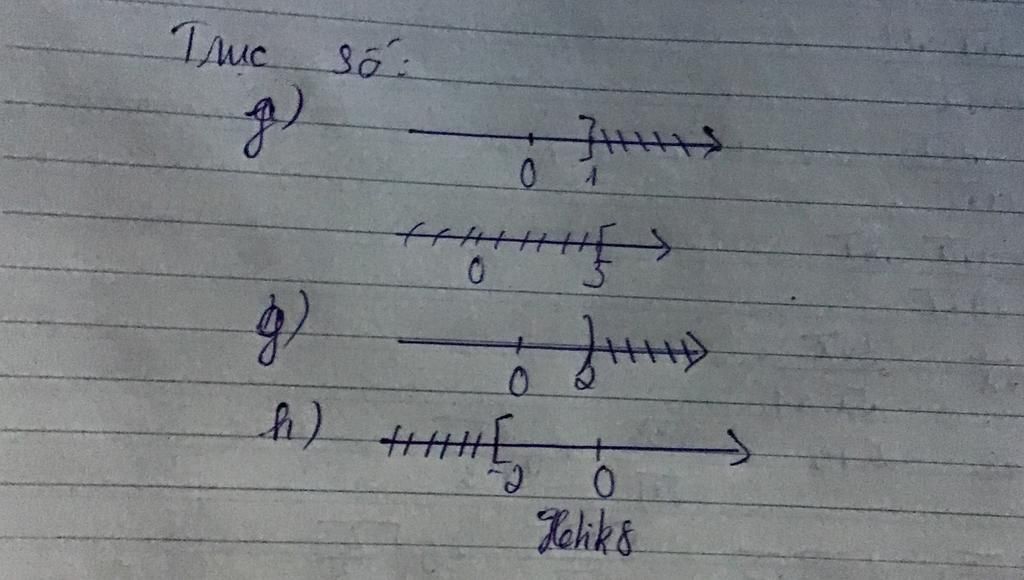 Trục số:
g)
0 1
0 5
g)
0 2
h)
-2 0
Helik8